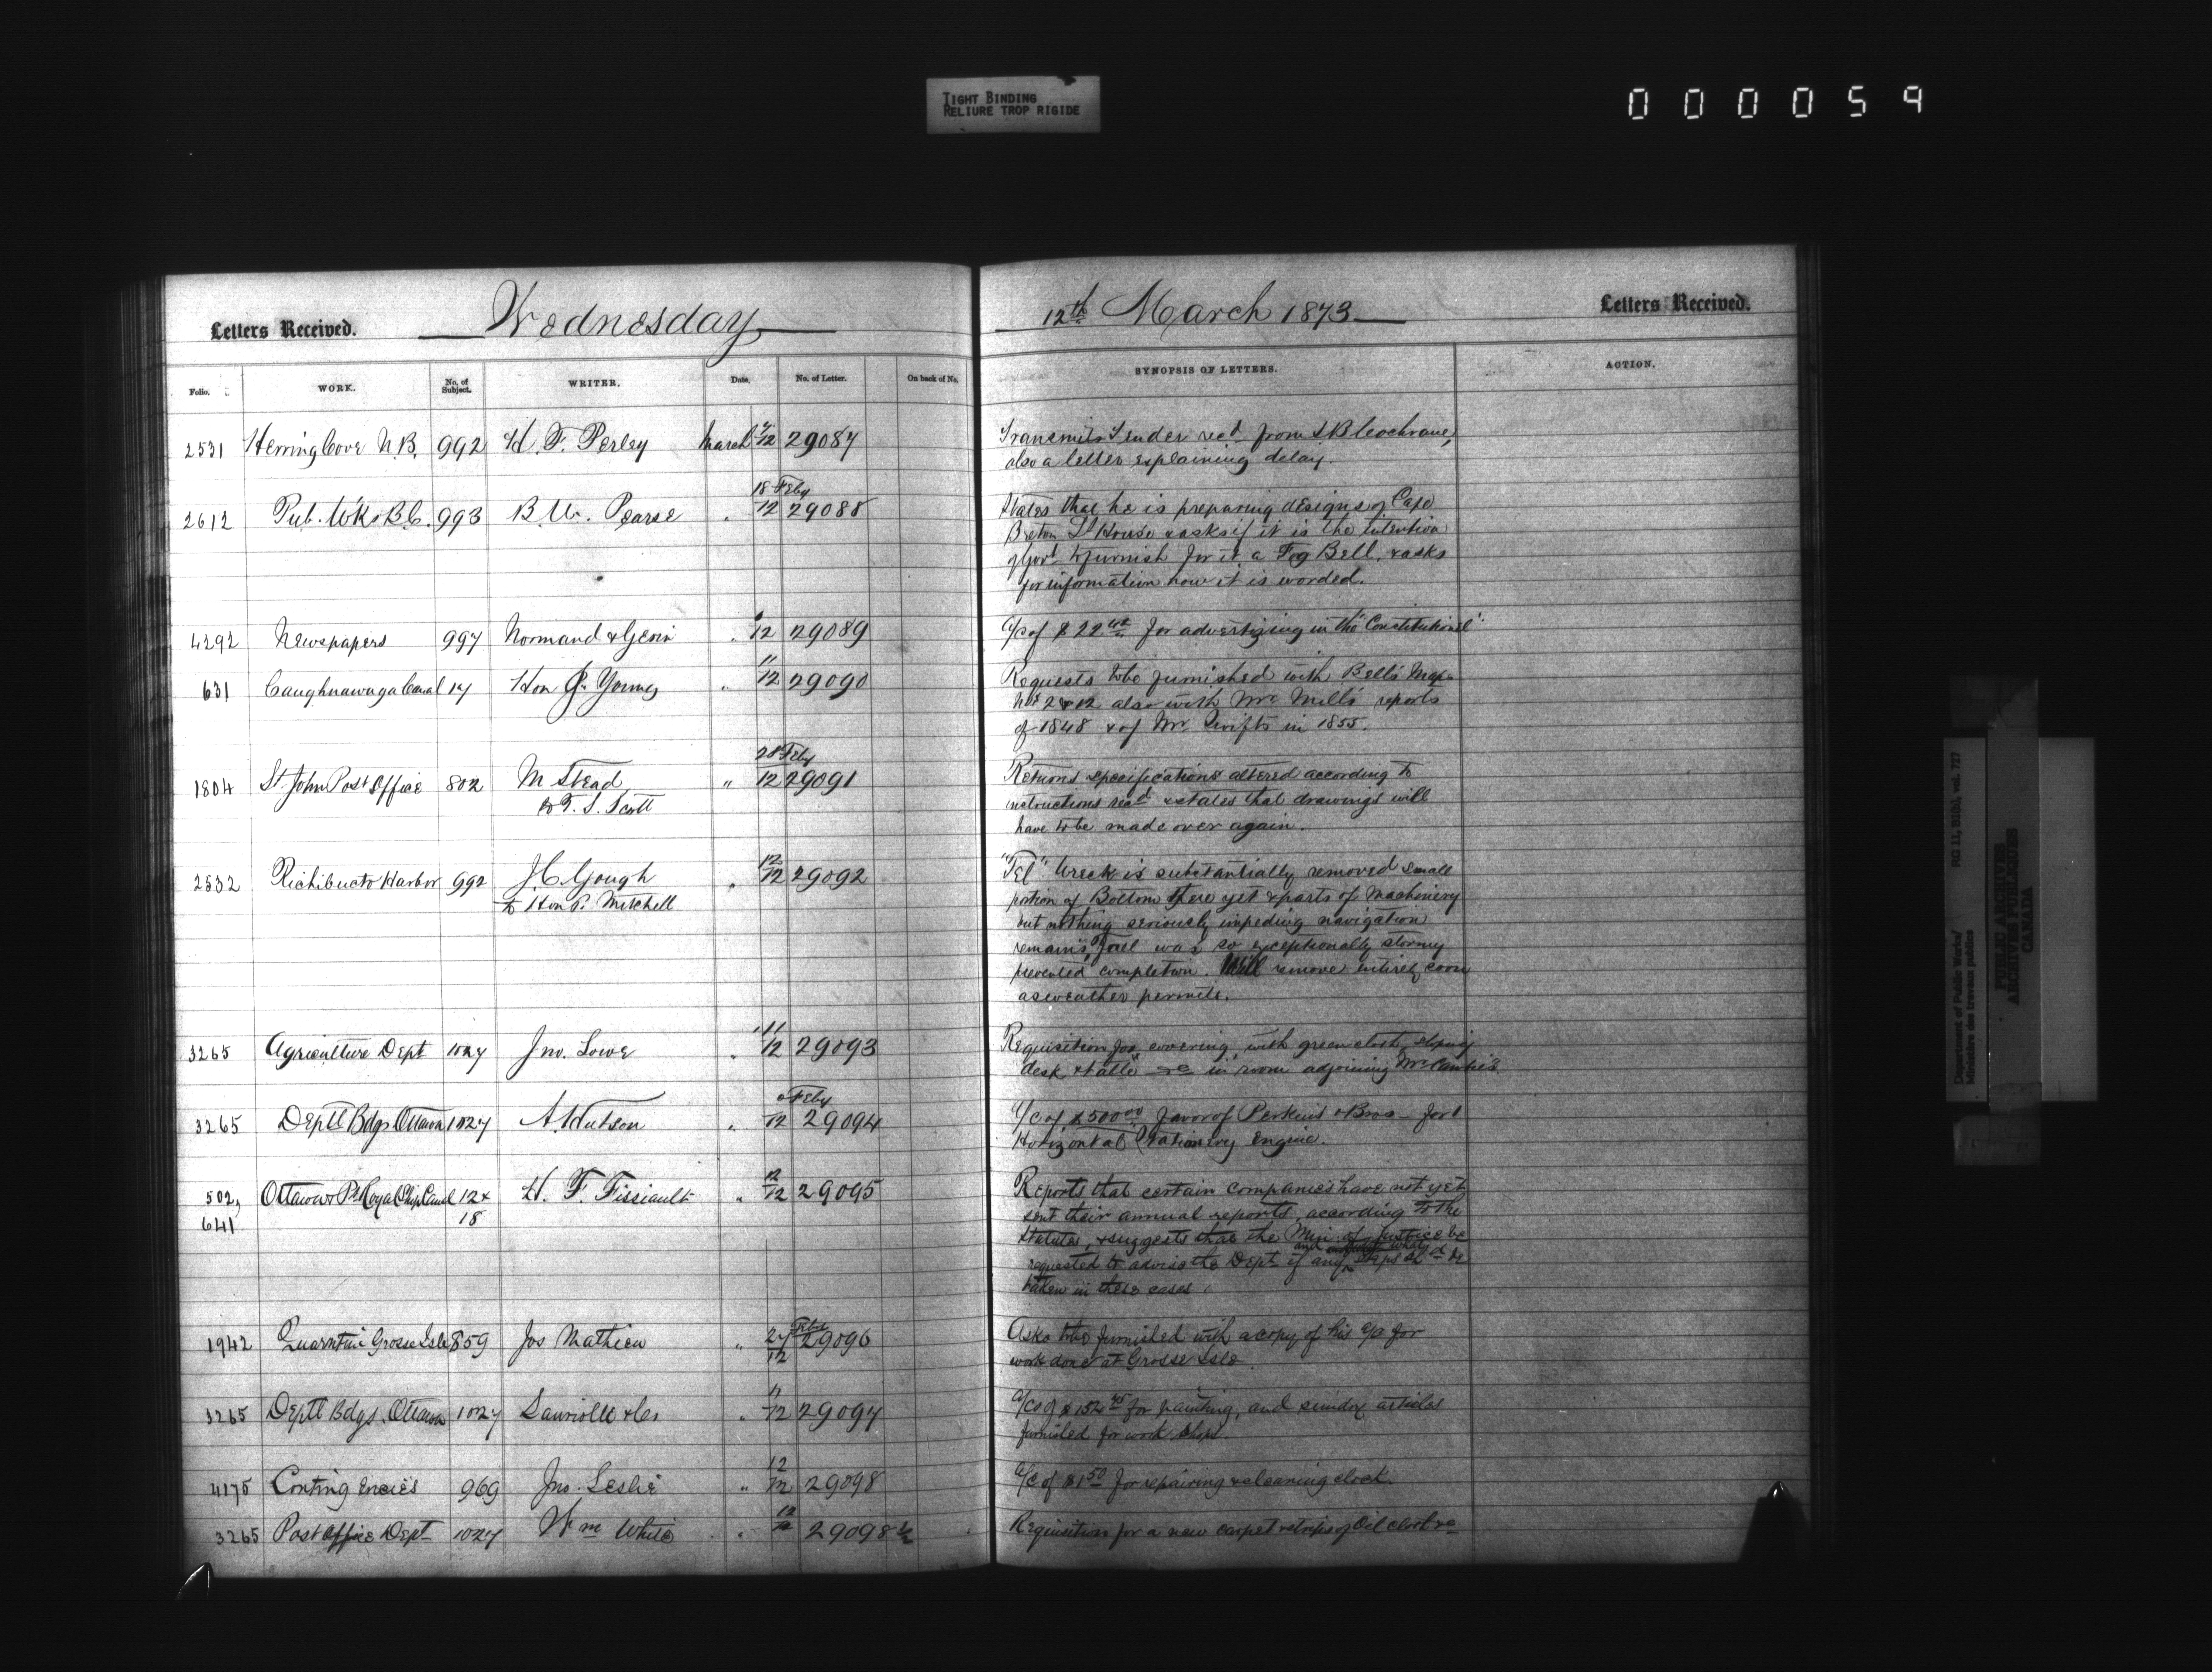 TIGHT BINDING
RELIURE TROP RIGIDE
000059
Letters Received. Wednesday 12th March 1873 Letters Received.
Folio. WORK. No. of Subject. WRITER. Date. No. of Letter. On back of No. SYNOPSIS OF LETTERS. ACTION.
2531 Herring Cove N.B. 992 H. F. Perley March 12 29087 Transmits Tender recd from
also a letter explaining delay.
18 Feby
2612 Pub. Wks B.C. 993 B. W. Pearse " 12 29088 States that he is preparing designs of Cape
Breton Lt House & asks if it is the intention
of Govt to furnish for it a Fog Bell, & asks
for information how it is worded.
4292 Newspapers 997 Normand & Gerin " 12 29089 a/c of $22 for advertizing in the "Constitutionel".
11
631 Caughnawaga Canal 17 Hon J. Young " 12 29090 Requests to be furnished with Bell's Map
Nos 2 & 12 also with Mr Mills reports
of 1848 & of Mr Swifts in 1855.
28 Feby
1804 St. John Post Office 802 M Stead " 12 29091 Returns specifications altered according to
to T. S. Scott instructions recd & states that drawings will
have to be made over again.
12
2532 Richibucto Harbor 992 J. C. Gough " 12 29092 "Tel" Wreck is substantially removed small
to Hon P. Mitchell portion of Bottom there yet & parts of Machinery
but nothing seriously impeding navigation
remains, was so exceptionally stormy
prevented completion. Will remove entirely soon
as weather permits.
11
3265 Agriculture Dept 1027 Jno. Lowe " 12 29093 Requisition for covering with green cloth, sloping
desk & table &c in room adjoining Mr
Feby
3265 Deptl Bdgs Ottawa 1027 A. Hutson " 12 29094 a/c of $500.00 favor of Perkins & Bros for 1
Horizontal Stationery Engine.
12
502, Ottawa Pt Royal Ship Canal 12 & H. F. Fissiault " 12 29095 Reports that certain companies have not yet
641 18 sent their annual reports, according to the
Statutes, & suggests that the Min. of Justice be
and what
requested to advise the Dept if any steps shd be
taken in these cases.
27 Feby
1942 Quarntine Grosse Isle 859 Jos Mathieu " 12 29096 Asks to be furnished with a copy of his a/c for
work done at Grosse Isle.
11
3265 Deptl Bdgs. Ottawa 1027 & Co " 12 29097 a/c of $152.45 for painting, and sundry articles
furnished for work shops.
12
4175 Contingencies 969 Jno. Leslie " 12 29098 a/c of $1.50 for repairing & cleaning clock.
12
3265 Post Office Dept 1027 Wm White " 12 29098½ Requisition for a new carpet & strips of Oil cloth &c
Department of Public Works/
Ministère des travaux publics
RG 11, B1(b), vol. 727
PUBLIC ARCHIVES
ARCHIVES PUBLIQUES
CANADA